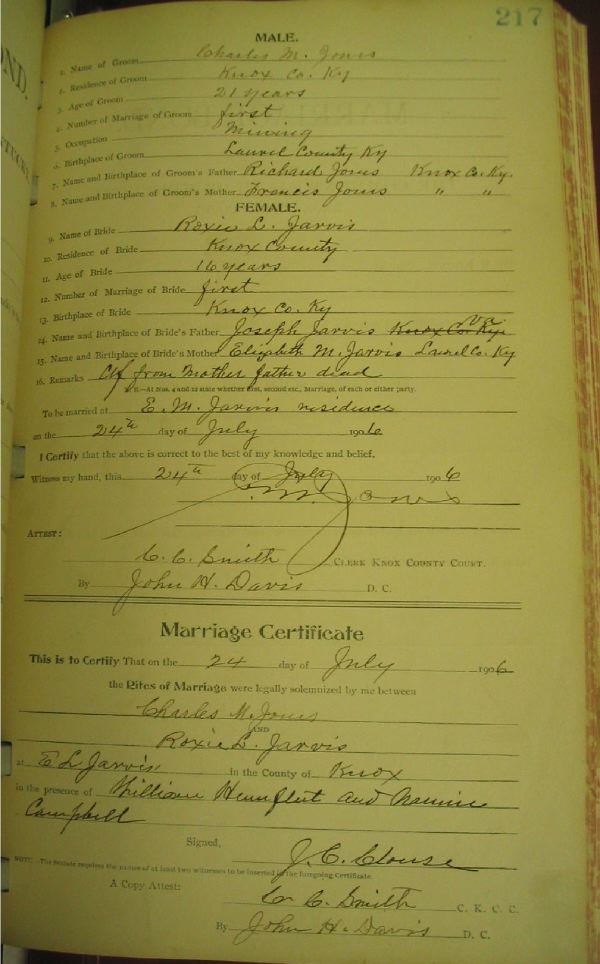 217
MALE.
1. Name of Groom Charles M. Jones
2. Residence of Groom Knox Co. Ky
3. Age of Groom 21 years
4. Number of Marriage of Groom first
5. Occupation Mining
6. Birthplace of Groom Laurel County Ky
7. Name and Birthplace of Groom's Father Richard Jones Knox Co. Ky.
8. Name and Birthplace of Groom's Mother Francis Jones " "
FEMALE.
9. Name of Bride Roxie L. Jarvis
10. Residence of Bride Knox County
11. Age of Bride 16 years
12. Number of Marriage of Bride first
13. Birthplace of Bride Knox Co. Ky
14. Name and Birthplace of Bride's Father Joseph Jarvis Knox Co. Ky. Va
15. Name and Birthplace of Bride's Mother Elizabeth M. Jarvis Laurel Co. Ky
16. Remarks Ctf from Mother father dead
N. B.—At Nos. 4 and 12 state whether first, second etc., Marriage, of each or either party.
To be married at E. M. Jarvis residence
on the 24th day of July 1906
I Certify that the above is correct to the best of my knowledge and belief.
Witness my hand, this 24th day of July 1906
C. M. Jones
ATTEST:
C. C. Smith CLERK KNOX COUNTY COURT.
By John H. Davis D. C.
Marriage Certificate
This is to Certify That on the 24 day of July 1906
the Rites of Marriage were legally solemnized by me between
Charles M. Jones
AND
Roxie L. Jarvis
at E L Jarvis in the County of Knox
in the presence of William and Nannie
Campbell
Signed, J. C. Clouse
NOTE:—The Statute requires the names of at least two witnesses to be inserted in the foregoing Certificate.
A Copy Attest: C. C. Smith C. K. C. C.
By John H. Davis D. C.